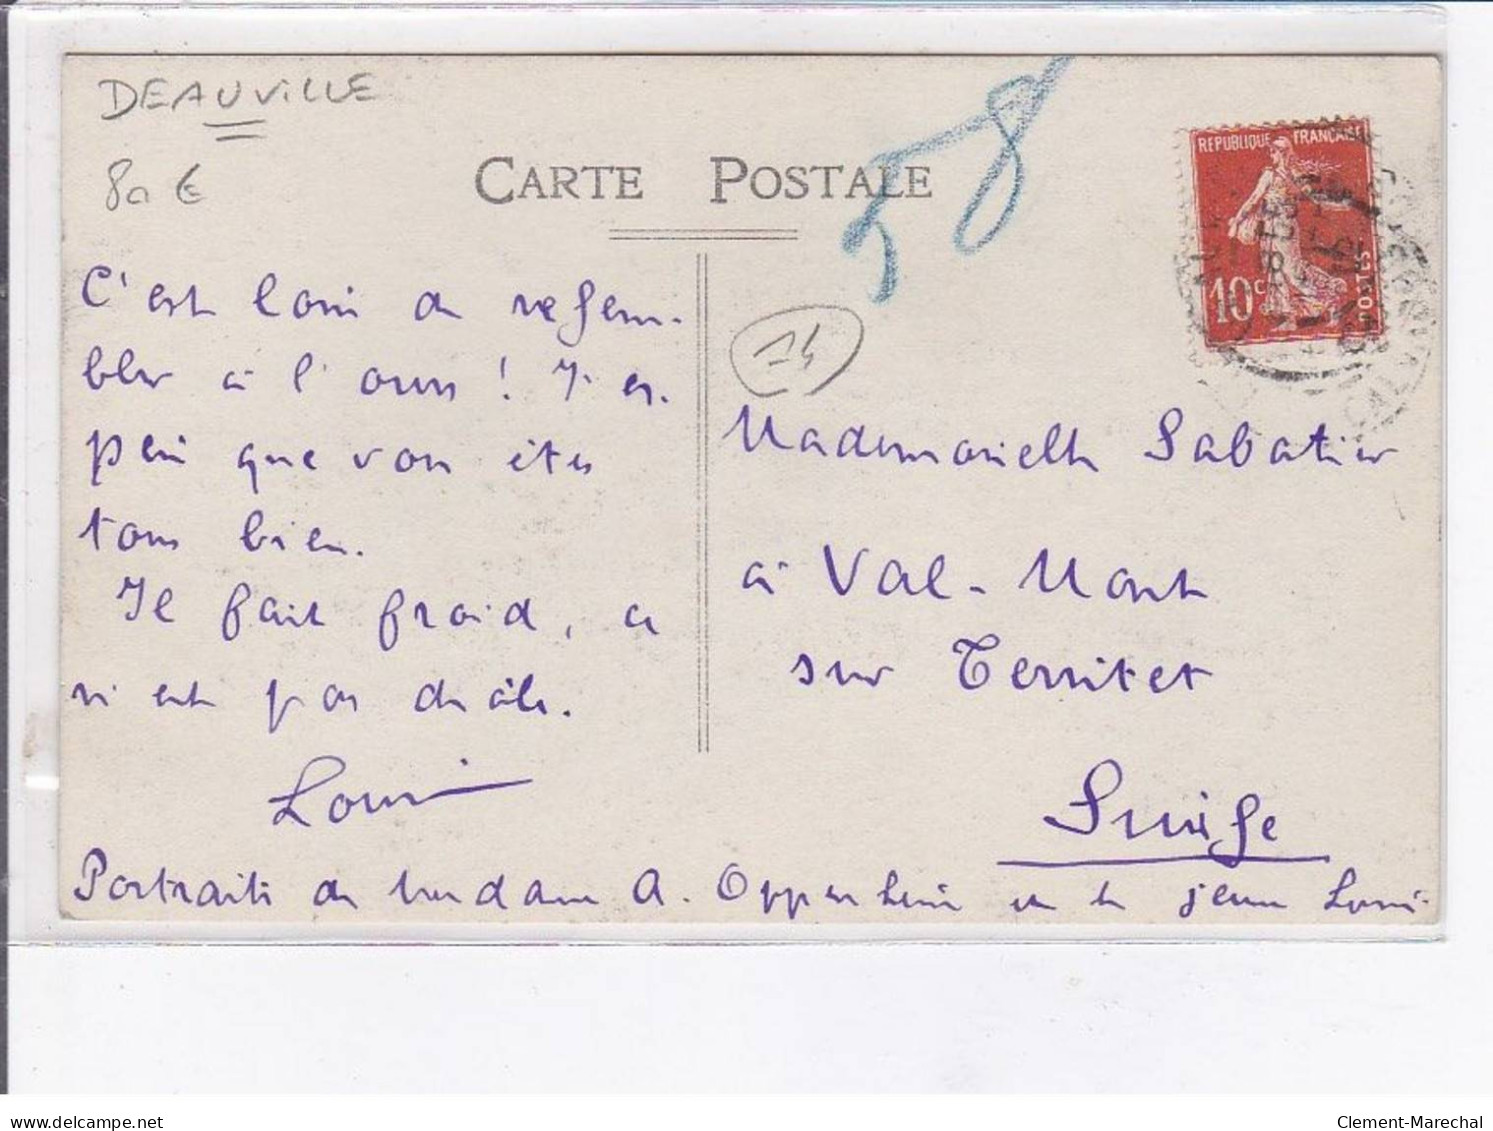 DEAUVILLE
80 €
CARTE POSTALE
58
14
REPUBLIQUE FRANÇAISE
10c
POSTES
C'est loin de ressem-
bler à l'ours ! J'es-
père que vous êtes
tous bien.
Il fait froid, ce
n'est pas drôle.
Louis
Mademoiselle Sabatier
à Val-Mont
sur Territet
Suisse
Portraits de Madame A. Oppenheim et le jeune Louis.
delcampe.net
Clement-Marechal